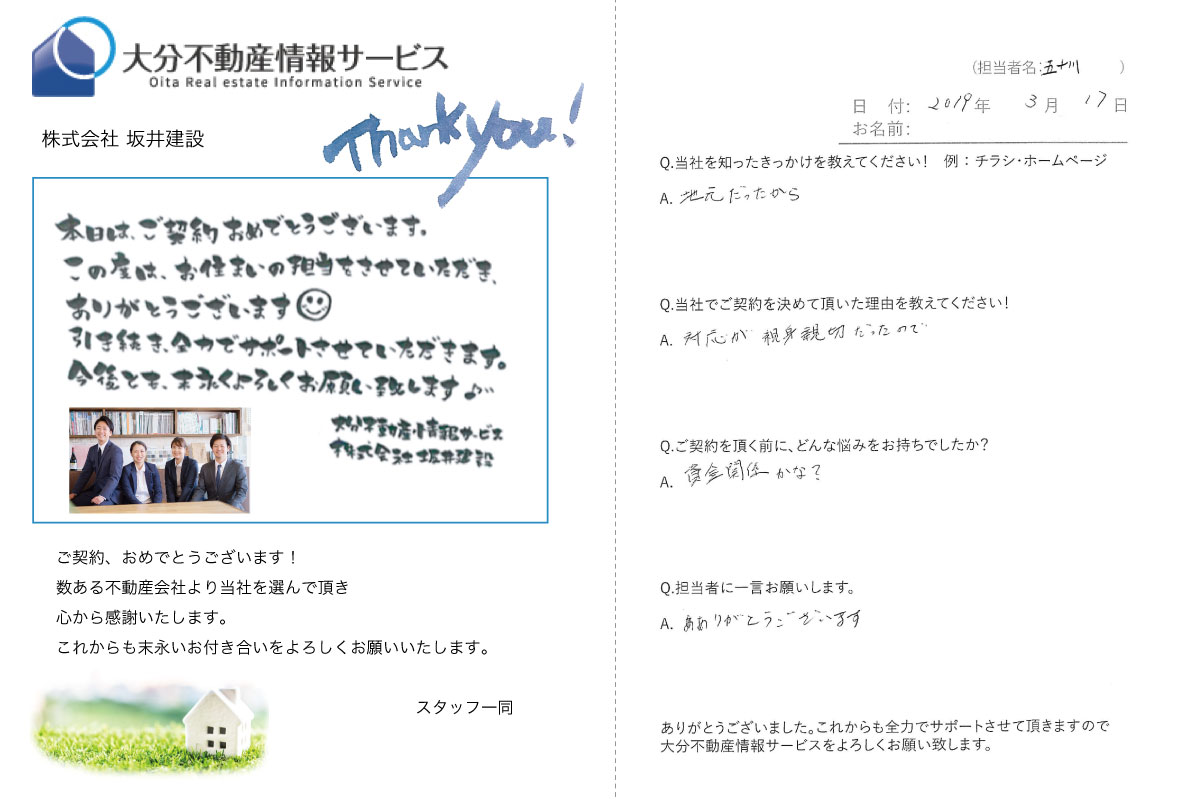 大分不動産情報サービス
Oita Real estate Information Service
株式会社 坂井建設
Thank you!
本日は、ご契約おめでとうございます。
この度は、お住まいの担当をさせていただき、
ありがとうございます
引き続き、全力でサポートさせていただきます。
今後とも、末永くよろしくお願い致します♪
大分不動産情報サービス
株式会社坂井建設
ご契約、おめでとうございます！
数ある不動産会社より当社を選んで頂き
心から感謝いたします。
これからも末永いお付き合いをよろしくお願いいたします。
スタッフ一同
(担当者名:五十川 )
日 付: 2019年 3月 17日
お名前:
Q.当社を知ったきっかけを教えてください! 例：チラシ・ホームページ
A. 地元だったから
Q.当社でご契約を決めて頂いた理由を教えてください!
A. 対応が親身親切だったので
Q.ご契約を頂く前に、どんな悩みをお持ちでしたか？
A. 資金関係かな？
Q.担当者に一言お願いします。
A. ありがとうございます
ありがとうございました。これからも全力でサポートさせて頂きますので
大分不動産情報サービスをよろしくお願い致します。